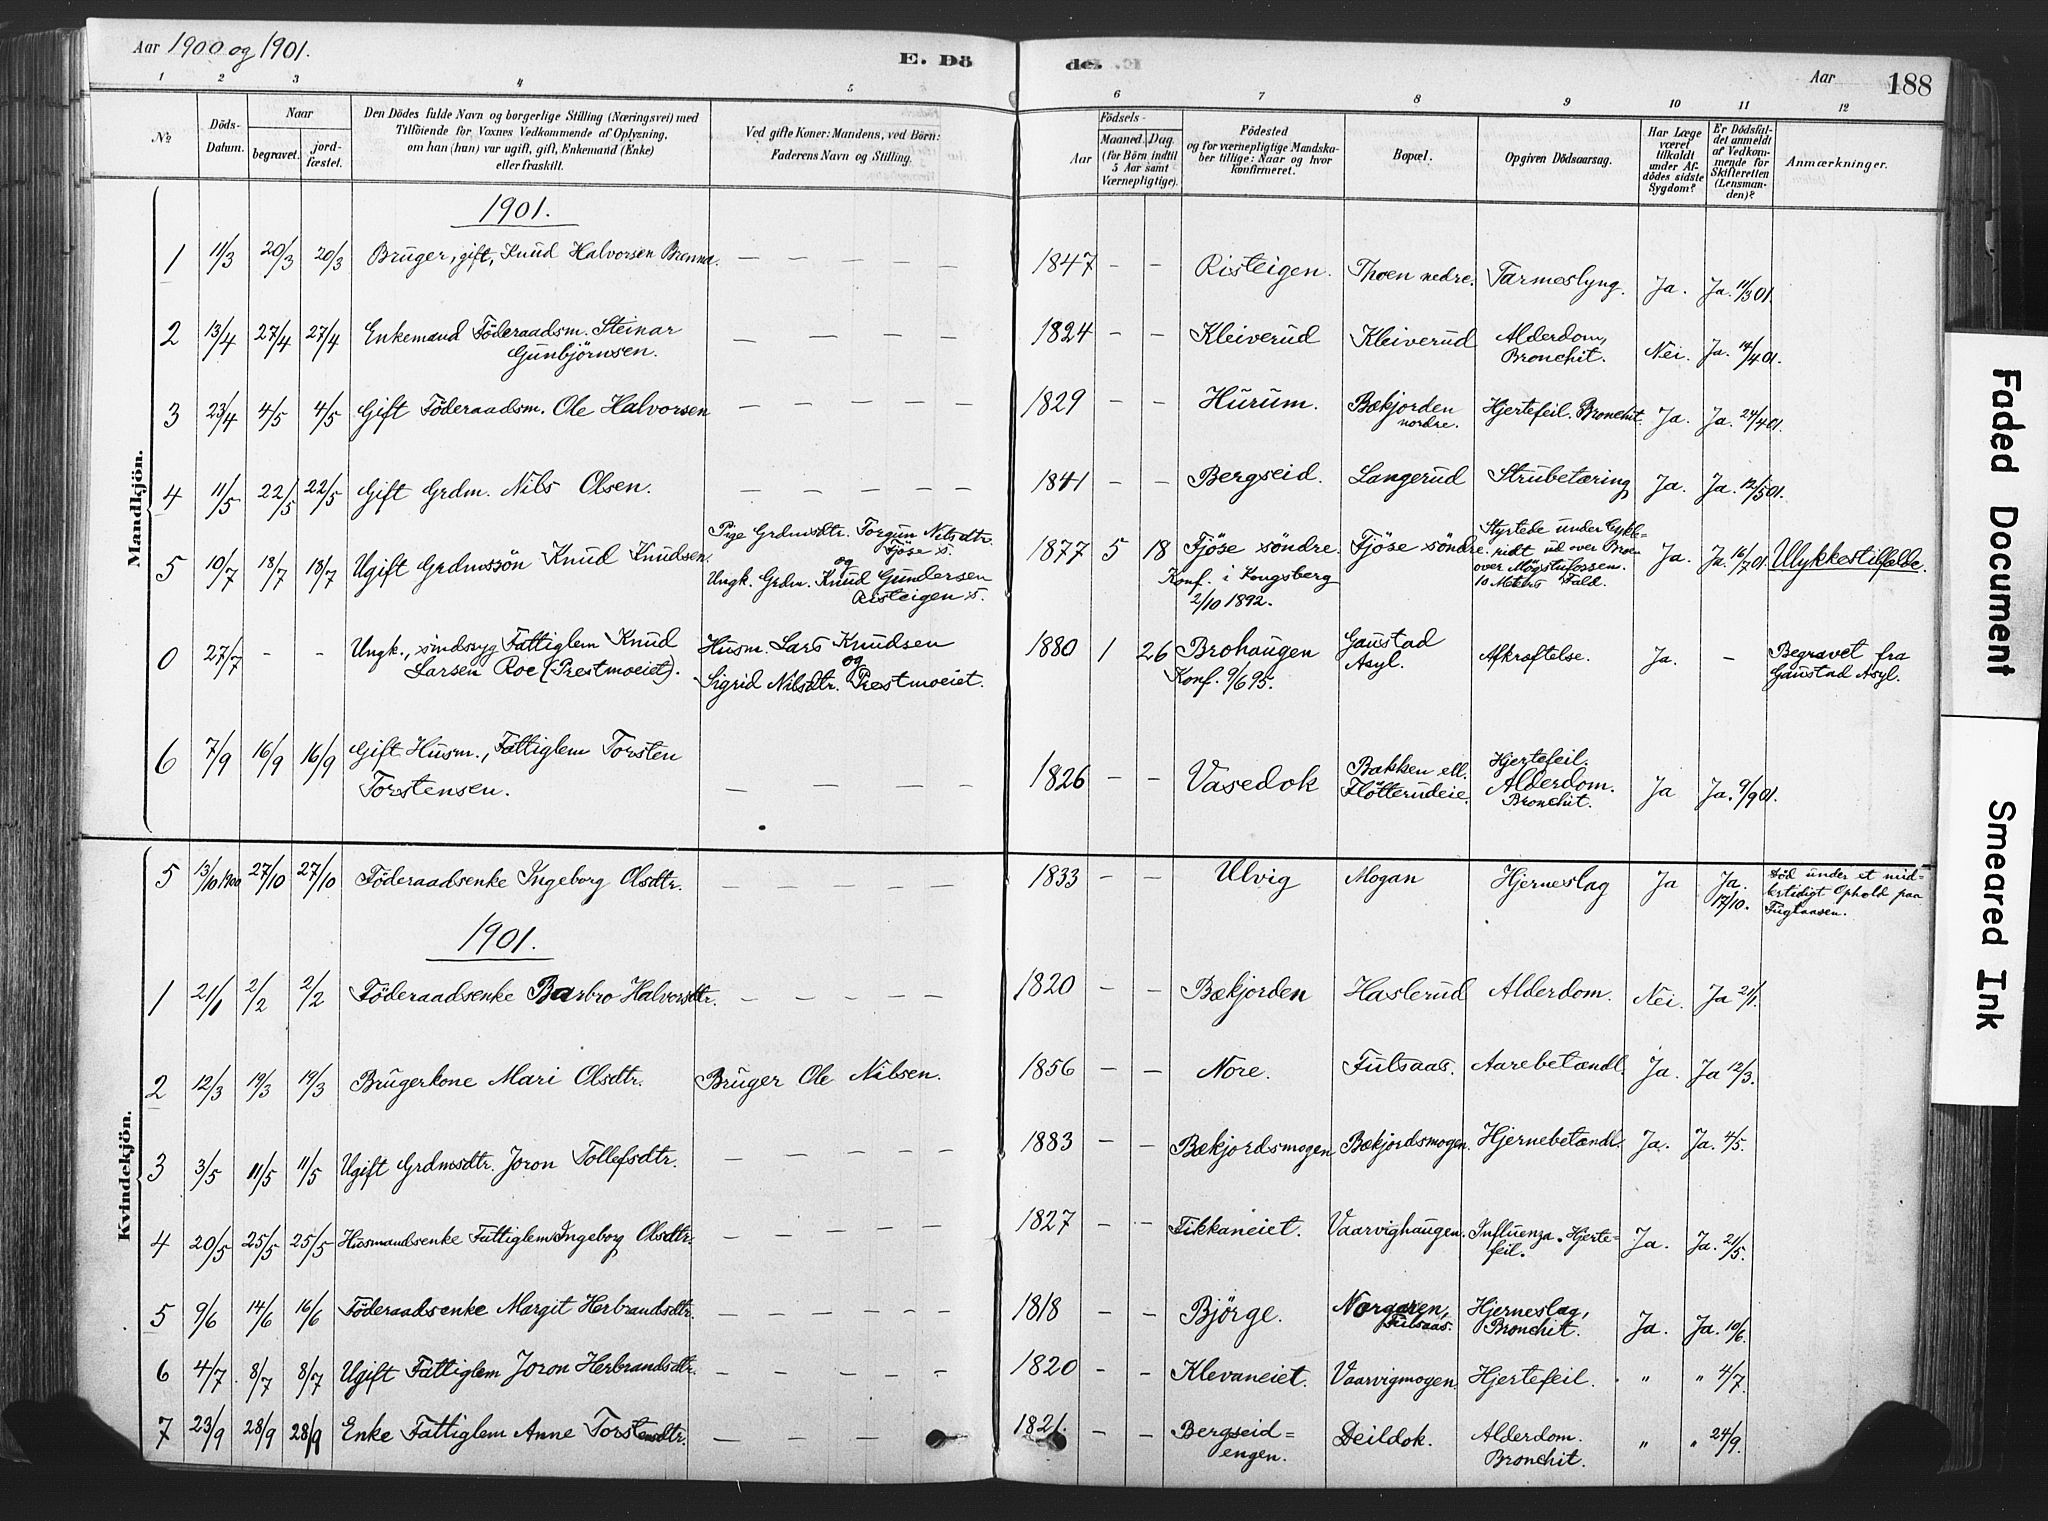 Aar 1900 og 1901.
E. Dö
de.
Aar
188
1 2 3 4 5 6 7 8 9 10 11 12
No
Döds-Datum.
Naar
begravet.
jord-fæstet.
Den Dödes fulde Navn og borgerlige Stilling (Næringsvei) med
Tilföiende for Voxnes Vedkommende af Oplysning,
om han (hun) var ugift, gift, Enkemand (Enke)
eller fraskilt.
Ved gifte Koner: Mandens, ved Börn:
Faderens Navn og Stilling.
Födsels-
Aar
Maaned. Dag.
(for Börn indtil
5 Aar samt
Værnepligtige).
Födested
og for værnepligtige Mandska-
ber tillige: Naar og hvor
konfirmeret.
Bopæl.
Opgiven Dödsaarsag.
Har Læge
været
tilkaldt
under Af-
dödes sidste
Sygdom?
Er Dödsfal-
det anmeldt
af Vedkom-
mende for
Skifteretten
(Lensman-
den)?
Anmærkninger.
Mandkjön.
1901.
1 11/3 20/3 20/3 Bruger, gift, Knud Halvorsen Brenna. — — — — — 1847 — — Risteigen. Thoen nedre. Tarmeslyng. Ja. Ja. 11/3 01.
2 13/4 27/4 27/4 Enkemand Föderaadsm. Steinar
Gunbjörnsen. — — — — 1824 — — Kleiverud Kleiverud Alderdom,
Bronchit. Nei. Ja. 14/4 01.
3 23/4 4/5 4/5 Gift Föderaadsm. Ole Halvorsen — — — — — 1829 — — Hurum. Bækjorden
nordre. Hjertefeil. Bronchit. Ja. Ja. 24/4 01.
4 11/5 22/5 22/5 Gift Grdm. Nils Olsen. — — — — — 1841 — — Bergseid. Langerud Strubetæring Ja. Ja. 12/5 01.
5 10/7 18/7 18/7 Ugift Grdmssön Knud Knudsen.
Pige Grdmsdtr. Torgun Nilsdtr.
Fjöse s.
og
Ungk. Grdm. Knud Gundersen
Risteigen s.
1877 5 18 Fjöse söndre.
Konf. i Kongsberg
2/10 1892.
Fjöse söndre.
Styrtede under Cykle-
ridt ud over Broen
over Mögstufossen.
10 Meters Fald.
Ja. Ja. 16/7 01. Ulykkestilfælde.
0 27/7 - - Ungk., sindssyg Fattiglem Knud
Larsen Roe (Prestmoeiet).
Husm. Lars Knudsen
og
Sigrid Nilsdtr. Prestmoeiet.
1880 1 26 Brohaugen
Konf. 9/6 95.
Gaustad
Asyl.
Afkræftelse. Ja. —
Begravet fra
Gaustad Asyl.
6 7/9 16/9 16/9 Gift Husm., Fattiglem Torsten
Torstensen. — — — — — 1826 — — Vasedok
Bakken ell.
Flötterudeie.
Hjertefeil.
Alderdom.
Bronchit.
Ja Ja. 9/9 01.
Kvindekjön.
5 13/10 1900 27/10 27/10 Föderaadsenke Ingeborg Olsdtr. — — — — — 1833 — — Ulvig Mogan Hjerneslag Ja Ja.
17/10.
Död under et mid-
lertidigt Ophold paa
Fuglaasen.
1901.
1 21/1 2/2 2/2 Föderaadsenke Barbro Halvorsdtr. — — — — — 1820 — — Bækjorden Haslerud Alderdom. Nei. Ja 21/1.
2 12/3 19/3 19/3 Brugerkone Mari Olsdtr. Bruger Ole Nilsen. 1856 — — Nore. Fulsaas. Aarebetændl. Ja. Ja 12/3.
3 3/5 11/5 11/5 Ugift Grdmsdtr. Joron Tollefsdtr. — — — — — 1883 — — Bækjordsmogen Bækjordsmogen. Hjernebetændl. Ja. Ja. 4/5.
4 20/5 25/5 25/5 Husmandsenke Fattiglem Ingeborg Olsdtr. — — — — — 1827 — — Fikkaneiet. Vaarvighaugen. Influenza. Hjerte-
feil. Ja. Ja. 21/5.
5 9/6 14/6 16/6 Föderaadsenke Margit Herbrandsdtr. — — — — — 1818 — — Björge. Norgaren,
Fulsaas.
Hjerneslag,
Bronchit. Ja. Ja. 10/6.
6 4/7. 8/7 8/7 Ugift Fattiglem Joron Herbrandsdtr. — — — — — 1820 — — Klevaneiet. Vaarvigmogen. Hjertefeil. " " 4/7.
7 23/9 28/9 28/9 Enke Fattiglem Anne Torstensdtr. — — — — 1821. — — Bergseid=
engen. Deildok. Alderdom.
Bronchit. " " 24/9.
Faded Document
Smeared Ink